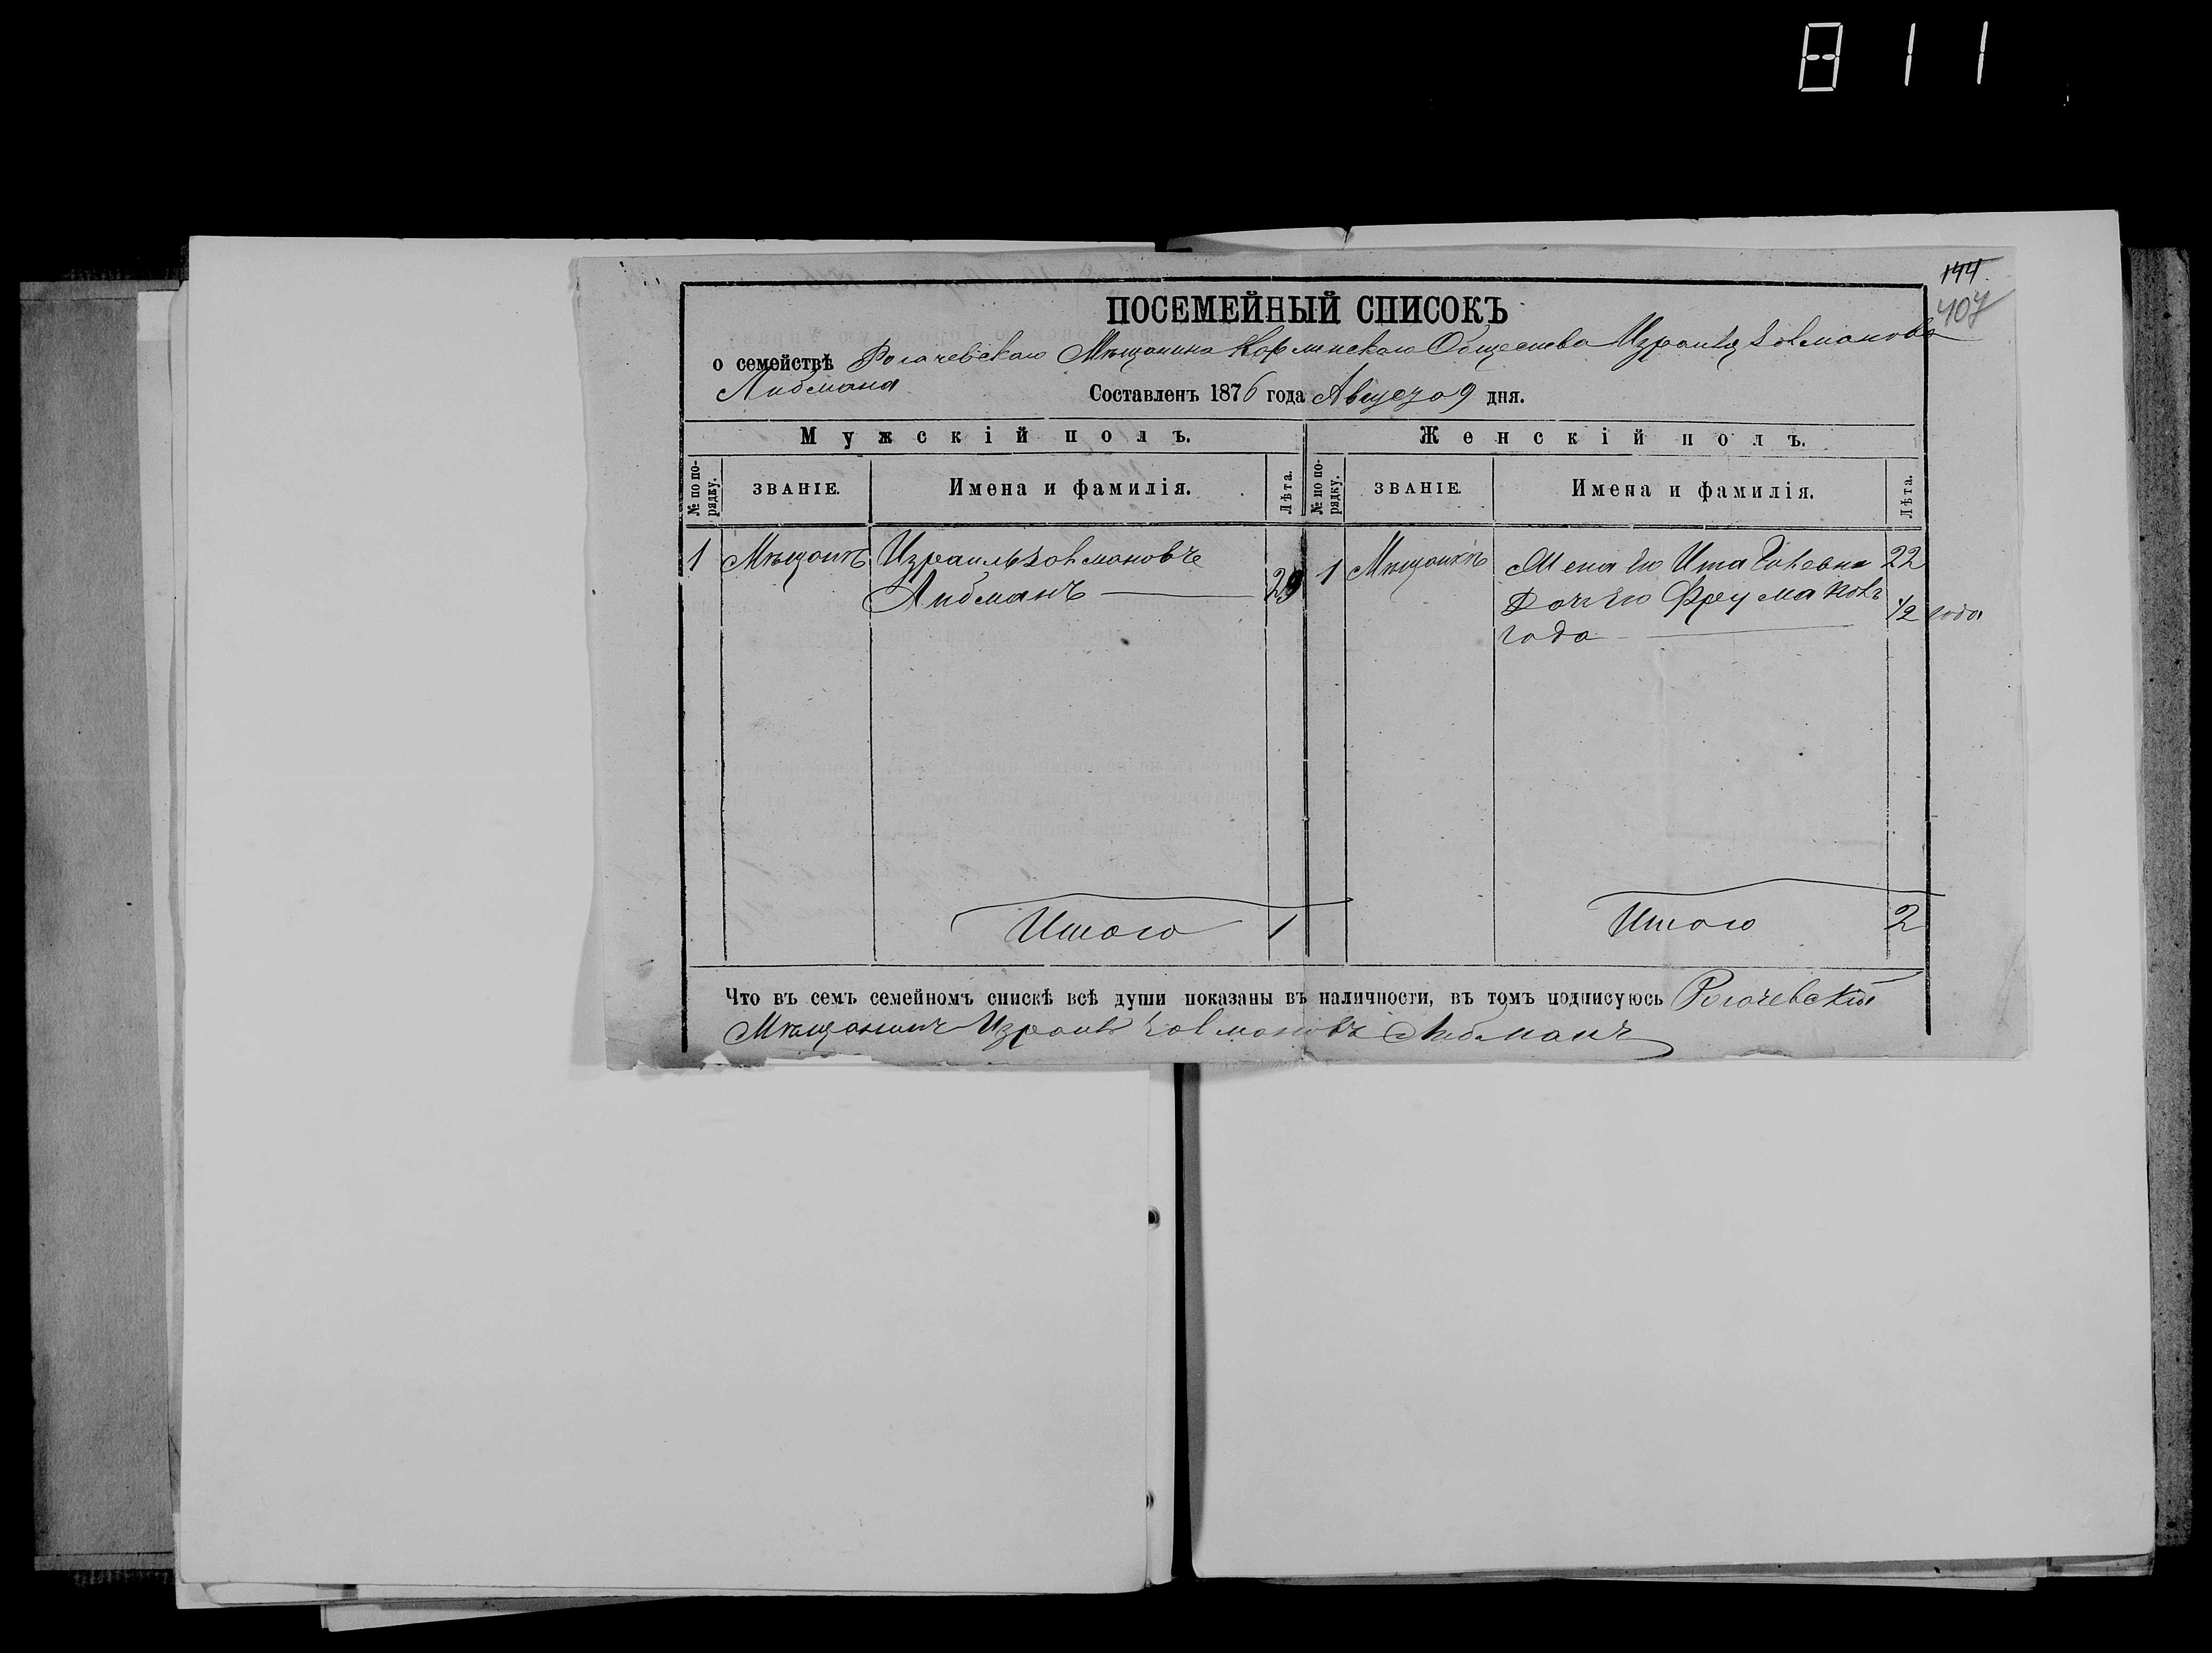 811
144
407
ПОСЕМЕЙНЫЙ СПИСОКЪ
о семействѣ Рогачевскаго Мѣщанина Общества
Либмана Составленъ 1876 года 9 дня.
Мужскій полъ. Женскій полъ.
№ по порядку. ЗВАНІЕ. Имена и фамилія. Лѣта. № по порядку. ЗВАНІЕ. Имена и фамилія. Лѣта.
1 Израиль 1 Ита 22
Либманъ 29 Фрума 1/2 года
года
Итого 1 Итого 2
Что въ семъ семейномъ спискѣ всѣ души показаны въ наличности, въ томъ подписуюсь Рогачевскій
Мѣщанинъ Либманъ